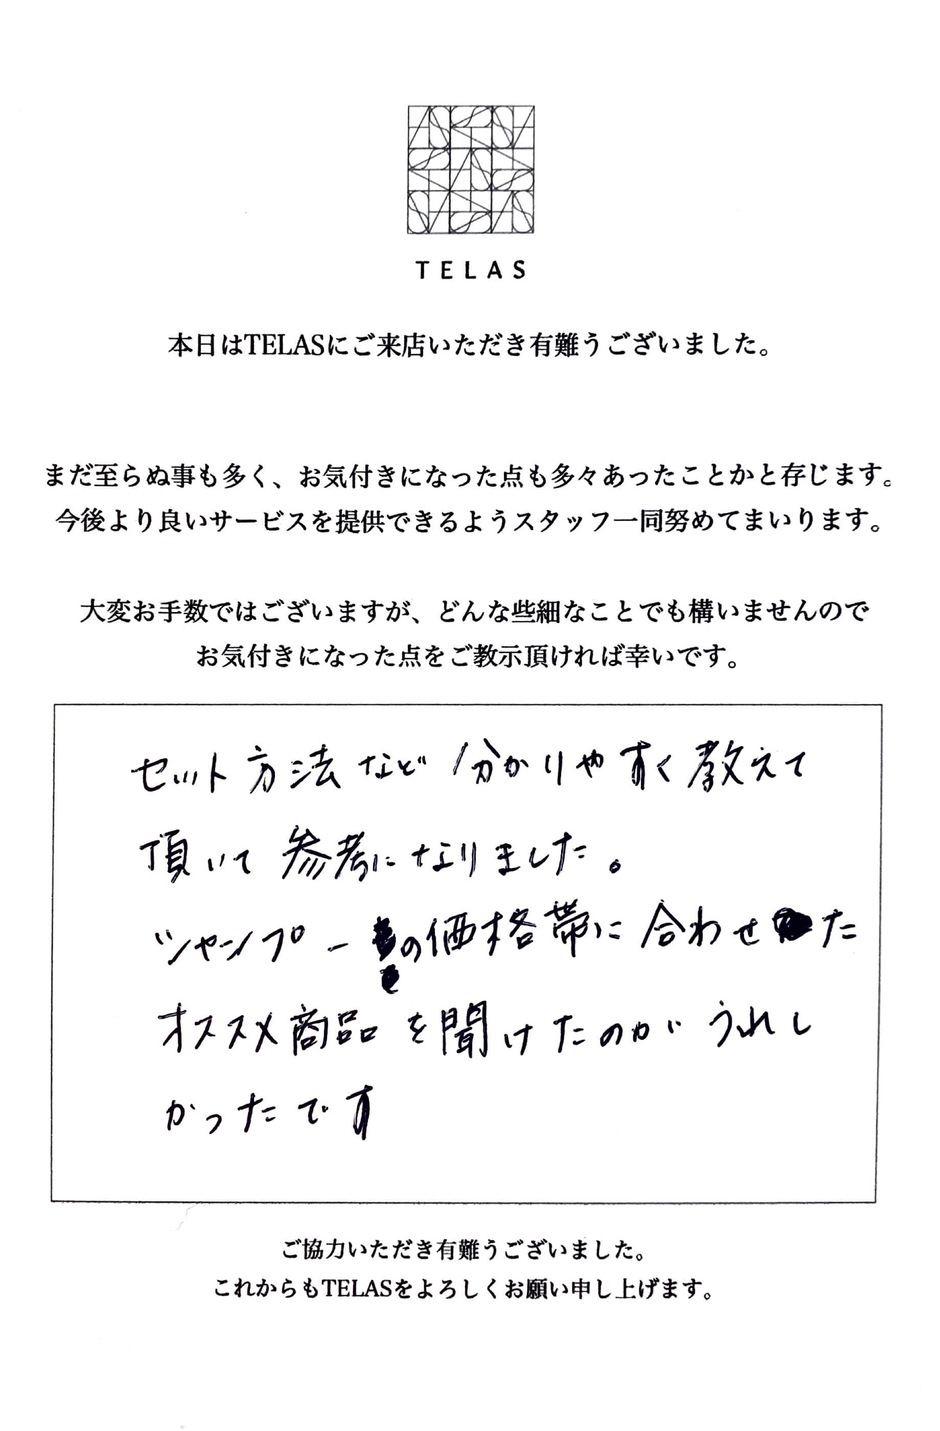 TELAS
本日はTELASにご来店いただき有難うございました。
まだ至らぬ事も多く、お気付きになった点も多々あったことかと存じます。
今後より良いサービスを提供できるようスタッフ一同努めてまいります。
大変お手数ではございますが、どんな些細なことでも構いませんので
お気付きになった点をご教示頂ければ幸いです。
セット方法など分かりやすく教えて
頂いて参考になりました。
シャンプーの価格帯に合わせた
オススメ商品を聞けたのがうれし
かったです
ご協力いただき有難うございました。
これからもTELASをよろしくお願い申し上げます。